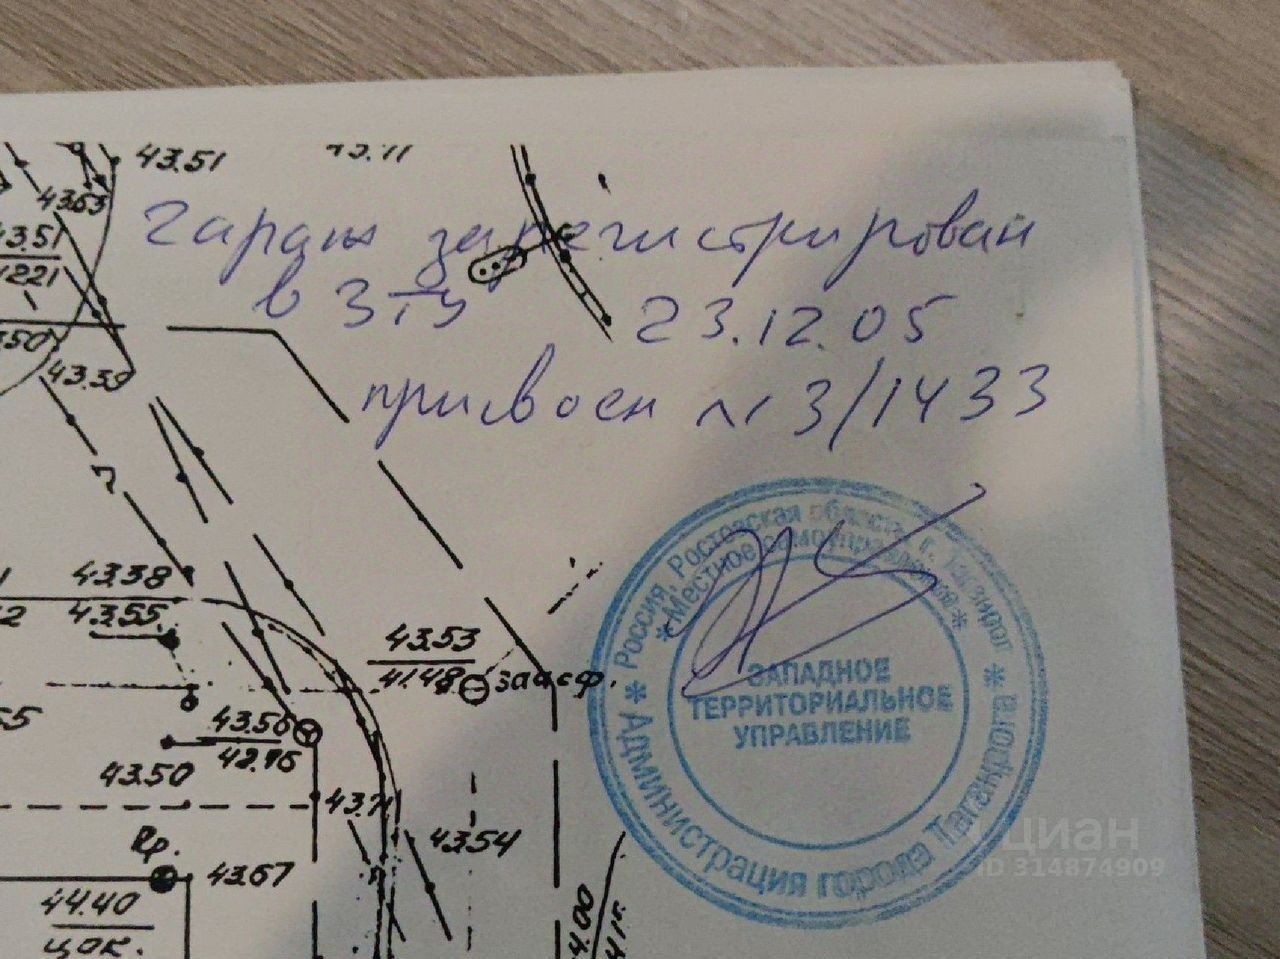 43.51
43.63
43.51
1221
гараж зарегистрирован
в ЗТУ 23.12.05
присвоен № 3/1433
43.39
43.38
43.55
43.53
41.48
заасф.
43.56
42.76
43.50
43.71
43.54
Кр.
43.67
44.40
цок.
4.00
Россия, Ростовская область, г. Таганрог
*Местное самоуправление*
ЗАПАДНОЕ
ТЕРРИТОРИАЛЬНОЕ
УПРАВЛЕНИЕ
* Администрация города Таганрога *
циан
ID 314874909